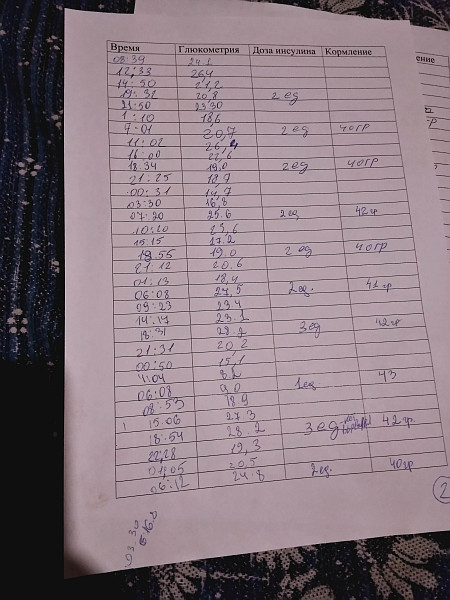 Время Глюкометрия Доза инсулина Кормление
08:39 24.1
12:33 26,4
14:50 21,2
19:31 20,8 2 ед
21:50 23.30
1:10 18,6
7:01 20,7 2 ед 40гр
11:02 26,4
16:00 22,6
18.34 19.0 2 ед 40гр
21:25 19,7
00:31 14,7
03:30 16,8
07:20 25.6 2ед 42гр
10:20 23,6
15:15 17.2
18.55 19.0 2 ед 40гр
21:12 20.6
01:13 18,4
06:08 27.5 2ед. 42 гр.
09:23 23.4
14:17 23.1
18:31 28.2 3ед 42гр
21:31 20,2
00:50 15,1
4:04 8.2
06:08 9.0 1ед 43
08:53 18.9
15:06 27.3
18:54 28.2 3ед 42 гр.
22,28 19,3
01:05 20,5
06:12 24.8 2ед. 40гр
2
03.30